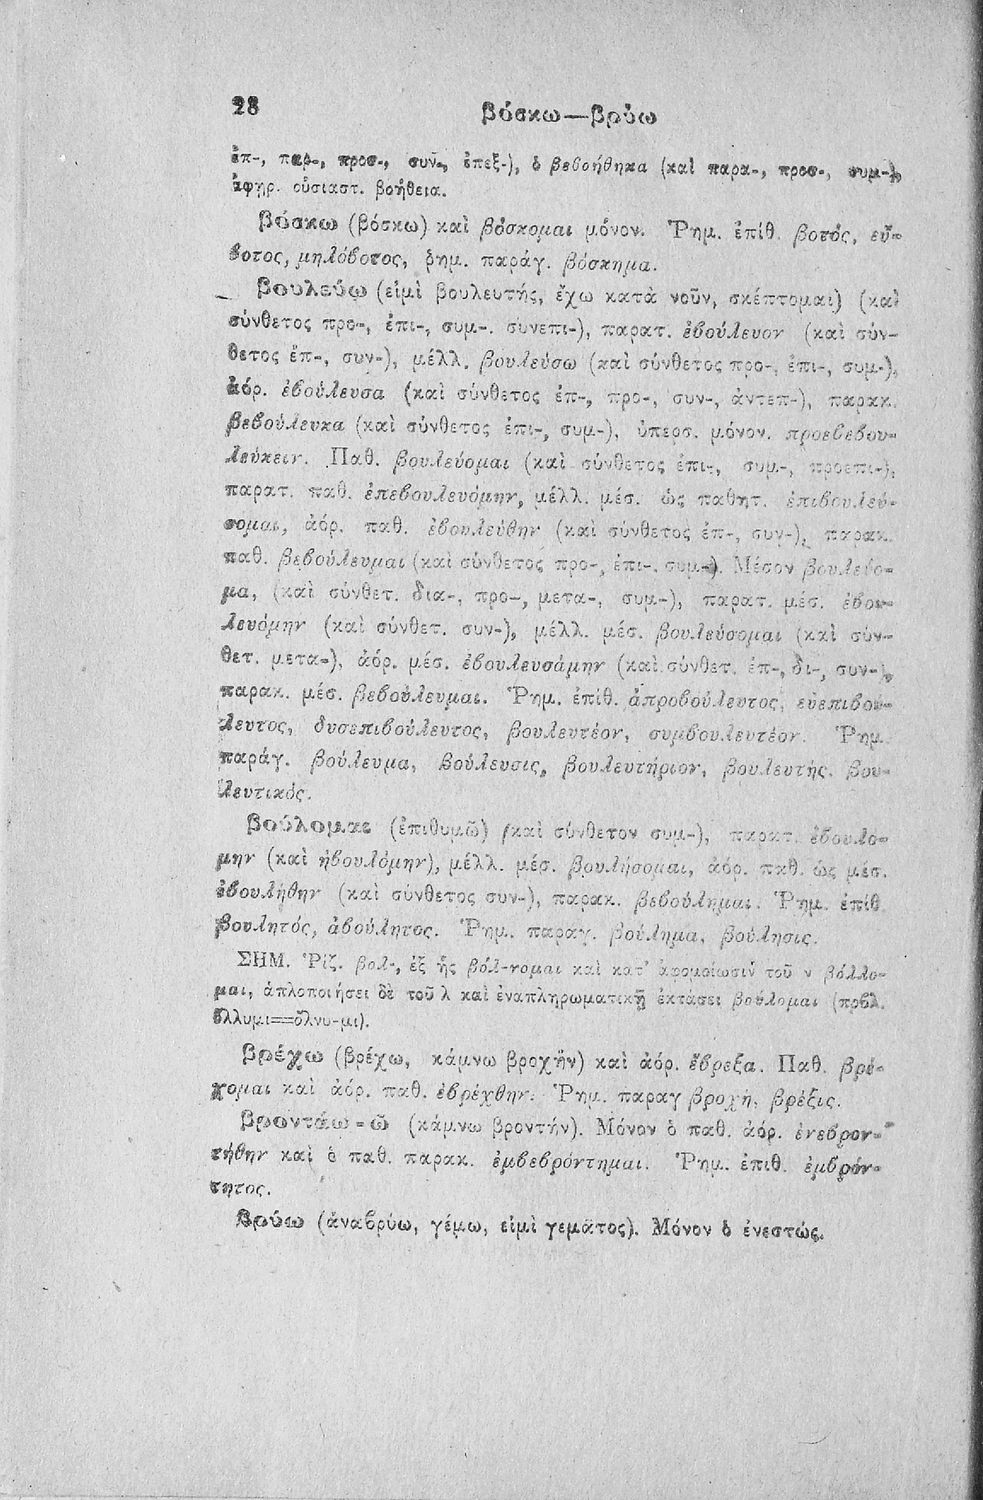 28
βόσκω—βρύω
ἐπ-, παρ-, προσ-, συν-, ἐπεξ-), ὁ βεβοήθηκα (καὶ παρα-, προσ-, συμ-),
ἀφηρ. οὐσιαστ. βοήθεια.
βόσκω (βόσκω) καὶ βόσκομαι μόνον. Ῥημ. ἐπίθ. βοτός, εὔ-
βοτος, μηλόβοτος, ῥημ. παράγ. βόσκημα.
βουλεύω (εἰμὶ βουλευτής, ἔχω κατὰ νοῦν, σκέπτομαι) (καὶ
σύνθετος προ-, ἐπι-, συμ-. συνεπι-), παρατ. ἐβούλευον (καὶ σύν-
θετος ἐπ-, συν-), μέλλ. βουλεύσω (καὶ σύνθετος προ-, ἐπι-, συμ-),
ἀόρ. ἐβούλευσα (καὶ σύνθετος ἐπ-, προ-, συν-, ἀντεπ-), παρακ.
βεβούλευκα (καὶ σύνθετος ἐπι-, συμ-), ὑπερσ. μόνον. προεβεβου-
λεύκειν. Παθ. βουλεύομαι (καὶ σύνθετος ἐπι-, συμ-, προεπι-),
παρατ. παθ. ἐπεβουλευόμην, μέλλ. μέσ. ὡς παθητ. ἐπιβουλεύ-
σομαι, ἀόρ. παθ. ἐβουλεύθην (καὶ σύνθετος ἐπ-, συν-), παρακ.
παθ. βεβούλευμαι (καὶ σύνθετος προ-, ἐπι-, συμ-). Μέσον βουλεύο-
μα, (καὶ σύνθετ. δια-, προ-, μετα-, συμ-), παρατ. μέσ. ἐβου-
λευόμην (καὶ σύνθετ. συν-), μέλλ. μέσ. βουλεύσομαι (καὶ σύν-
θετ. μετα-), ἀόρ. μέσ. ἐβουλευσάμην (καὶ σύνθετ. ἐπ-, δι-, συν-),
παρακ. μέσ. βεβούλευμαι. Ῥημ. ἐπίθ. ἀπροβούλευτος, εὐεπιβού-
λευτος, δυσεπιβούλευτος, βουλευτέον, συμβουλευτέον. Ῥημ.
παράγ. βούλευμα, βούλευσις, βουλευτήριον, βουλευτής, βου-
λευτικός.
βούλομαι (ἐπιθυμῶ) (καὶ σύνθετον συμ-), παρατ. ἐβουλό-
μην (καὶ ἠβουλόμην), μέλλ. μέσ. βουλήσομαι, ἀόρ. παθ. ὡς μέσ.
ἐβουλήθην (καὶ σύνθετος συν-), παρακ. βεβούλημαι. Ῥημ. ἐπίθ
βουλητός, ἀβούλητος. Ῥημ. παράγ. βούλημα, βούλησις.
ΣΗΜ. Ῥίζ. βολ-, ἐξ ἧς βόλ-νομαι καὶ κατ' ἀφομοίωσιν τοῦ ν βόλλο-
μαι, ἁπλοποιήσει δὲ τοῦ λ καὶ ἐναπληρωματικῇ ἐκτάσει βούλομαι (πρβλ.
ὄλλυμι=ὄλνυ-μι).
βρέχω (βρέχω, κάμνω βροχὴν) καὶ ἀόρ. ἔβρεξα. Παθ. βρέ-
χομαι καὶ ἀόρ. παθ. ἐβρέχθην. Ῥημ. παραγ βροχή, βρέξις.
βροντάω-ῶ (κάμνω βροντήν). Μόνον ὁ παθ. ἀόρ. ἐνεβρον-
τήθην καὶ ὁ παθ. παρακ. ἐμβεβρόντημαι. Ῥημ. ἐπιθ. ἐμβρόν-
τητος.
βρύω (ἀναβρύω, γέμω, εἰμὶ γεμᾶτος). Μόνον ὁ ἐνεστώς.